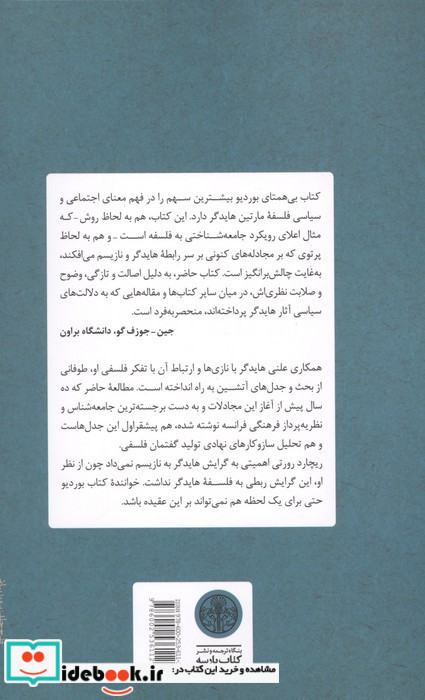 کتاب بی‌همتای بوردیو بیشترین سهم را در فهم معنای اجتماعی و
سیاسی فلسفهٔ مارتین هایدگر دارد. این کتاب، هم به لحاظ روش -که
مثال اعلای رویکرد جامعه‌شناختی به فلسفه است - و هم به لحاظ
پرتوی که بر مجادله‌های کنونی بر سر رابطهٔ هایدگر و نازیسم می‌افکند،
به‌غایت چالش‌برانگیز است. کتاب حاضر، به دلیل اصالت و تازگی، وضوح
و صلابت نظری‌اش، در میان سایر کتاب‌ها و مقاله‌هایی که به دلالت‌های
سیاسی آثار هایدگر پرداخته‌اند، منحصربه‌فرد است.
جین - جوزف گو، دانشگاه براون
همکاری علنی هایدگر با نازی‌ها و ارتباط آن با تفکر فلسفی او، طوفانی
از بحث و جدل‌های آتشین به راه انداخته است. مطالعهٔ حاضر که ده
سال پیش از آغاز این مجادلات و به دست برجسته‌ترین جامعه‌شناس و
نظریه‌پرداز فرهنگی فرانسه نوشته شده، هم پیشقراول این جدل‌هاست
و هم تحلیل سازوکارهای نهادی تولید گفتمان فلسفی.
ریچارد رورتی اهمیتی به گرایش هایدگر به نازیسم نمی‌داد چون از نظر
او، این گرایش ربطی به فلسفهٔ هایدگر نداشت. خوانندهٔ کتاب بوردیو
حتی برای یک لحظه هم نمی‌تواند بر این عقیده باشد.
بنگاه ترجمه و نشر
کتاب پارسه
مشاهده و خرید این کتاب در:
idebook.ir